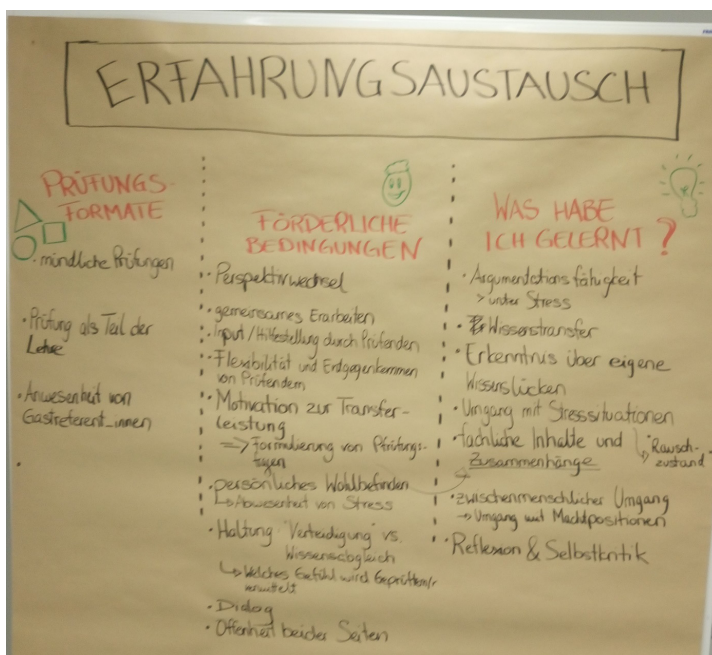 ERFAHRUNGSAUSTAUSCH
PRÜFUNGS-
FORMATE
· mündliche Prüfungen
· Prüfung als Teil der
Lehre
· Anwesenheit von
Gastreferent_innen
FÖRDERLICHE
BEDINGUNGEN
· Perspektivwechsel
· gemeinsames Erarbeiten
· Input / Hilfestellung durch Prüfenden
· Flexibilität und Entgegenkommen
von Prüfendem
· Motivation zur Transfer-
leistung
=> Formulierung von Prüfungs-
fragen
· persönliches Wohlbefinden
↳ Abwesenheit von Stress
· Haltung "Verteidigung" vs.
Wissensabgleich
↳ Welches Gefühl wird Geprüftem/r
vermittelt
· Dialog
· Offenheit beider Seiten
WAS HABE
ICH GELERNT?
· Argumentationsfähigkeit
> unter Stress
· Wissenstransfer
· Erkenntnis über eigene
Wissenslücken
· Umgang mit Stresssituationen
· fachliche Inhalte und
Zusammenhänge
↳ Rausch-
zustand
· zwischenmenschlicher Umgang
→ Umgang mit Machtpositionen
· Reflexion & Selbstkritik